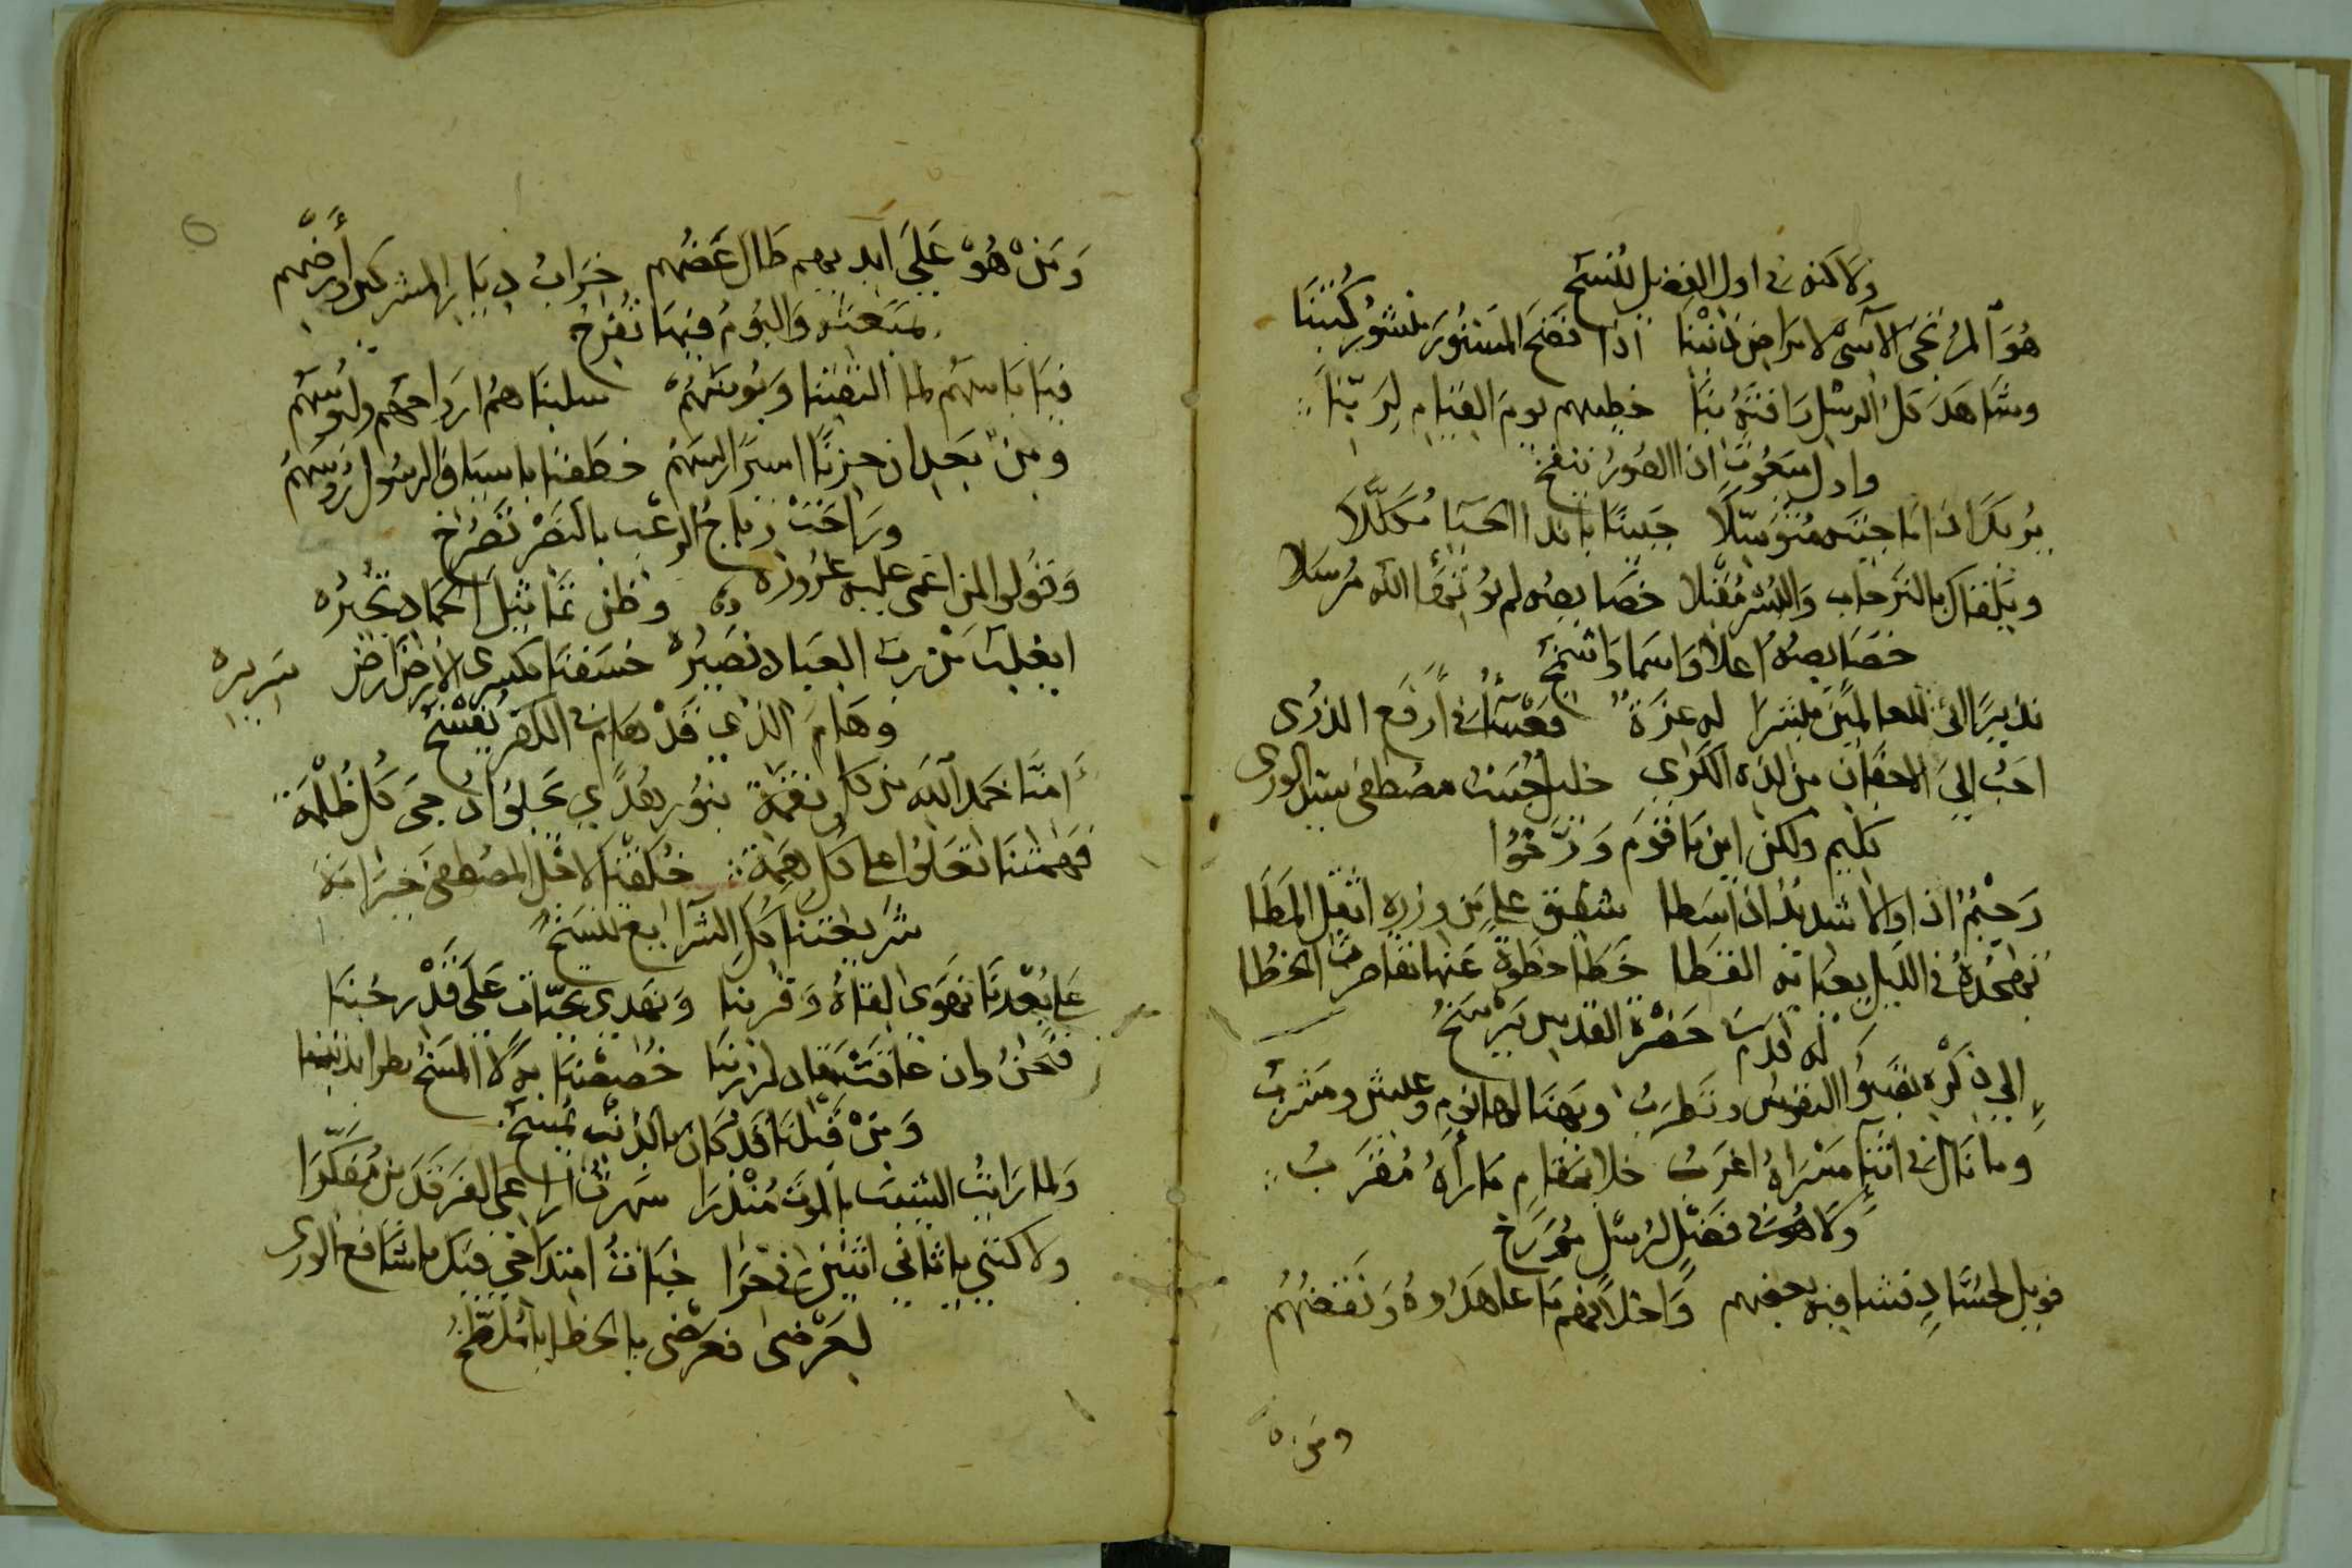 ولاكنه في اول الفضل ينسخ
هُوَ المرتجى الآسي لامراض ذنبنا اذا فضح المستور منشور كتبنا
وشاهد كل الرسل رافة بنا خطيبهم يوم القيام لربنا
واول مبعوث اذا الصور ينفخ
يُريك اذا ما جيته متوسلا جبينا بانداء الحيا مكللا
ويلقاك بالترحاب والبشر مقبلا خصايصه لم يؤتها الله مرسلا
خصايصه اعلا واسما واشمخ
نذيرا اتى للعالمين مبشرا له عزة في ارفع الذرى
احب الى الاجفان من لذة الكرى خليل حبيب مصطفى سيد الورى
كليم ولكن اين يا قوم ورخوا
رحيم اذا والا شديد اذا سطا شفيق على من وزره اثقل المطا
تهجده في الليل يعيا به القطا خطا خطوة عنها تقاصرت الخطا
له قدم حضرة القدس يرسخ
الى ذكره تصبو النفوس وتطرب ويهنا لها نوم وعيش ومشرب
وما نال في اثنا مسراه اغرب خلا بمقام ما رآه مقرب
ولا هو في فضل لرسل مورخ
فويل لحساد فشا فيه بعضهم واخلافهم ما عاهدوه ونقضهم
ومن
ومن هو على ايديهم طال عضهم خراب ديار المشركين وارضهم
بمبعثه واليوم فيها تفرخ
فيا باسهم لما التقينا وبوسهم سلبناهم ارواحهم ولبوسهم
ومن بعد ان حزنا اسارا رييسهم خطفنا باسياف الرسول رؤسهم
وراحت رياح الرعب بالنصر تصرخ
وقولوا لمن اعمى عليه غروره وظن تماثيل الجماد تجيره
ايغلب من رب العباد نصيره خسفنا بكسرى الارض ارض سريره
وهام الذي قد هام في الكفر نفسخ
امتنا خمد الله من كل نقمة بنور هدى يجلو دجى كل ظلمة
فهمتنا تعلوا على كل همة خلقنا لاجل المصطفى خير امة
شريعتنا كل الشرايع تنسخ
على بعدنا نهوى لقاه وقربنا ونهدي تحيات على قدر حبنا
فنحن وان عاقت مقادير ربنا خصصنا به لا المسخ يطرا بذنبنا
ومن قبلنا قد كان بالذنب يمسخ
ولما رايت الشيب بالموت منذرا سهرت اراعي الفرقدين مفكرا
ولاكنني يا ثاني اثنين في حرا خبات امتداحي فيك يا شافع الورى
لعرضى فعرضى بالخطايا ملطخ